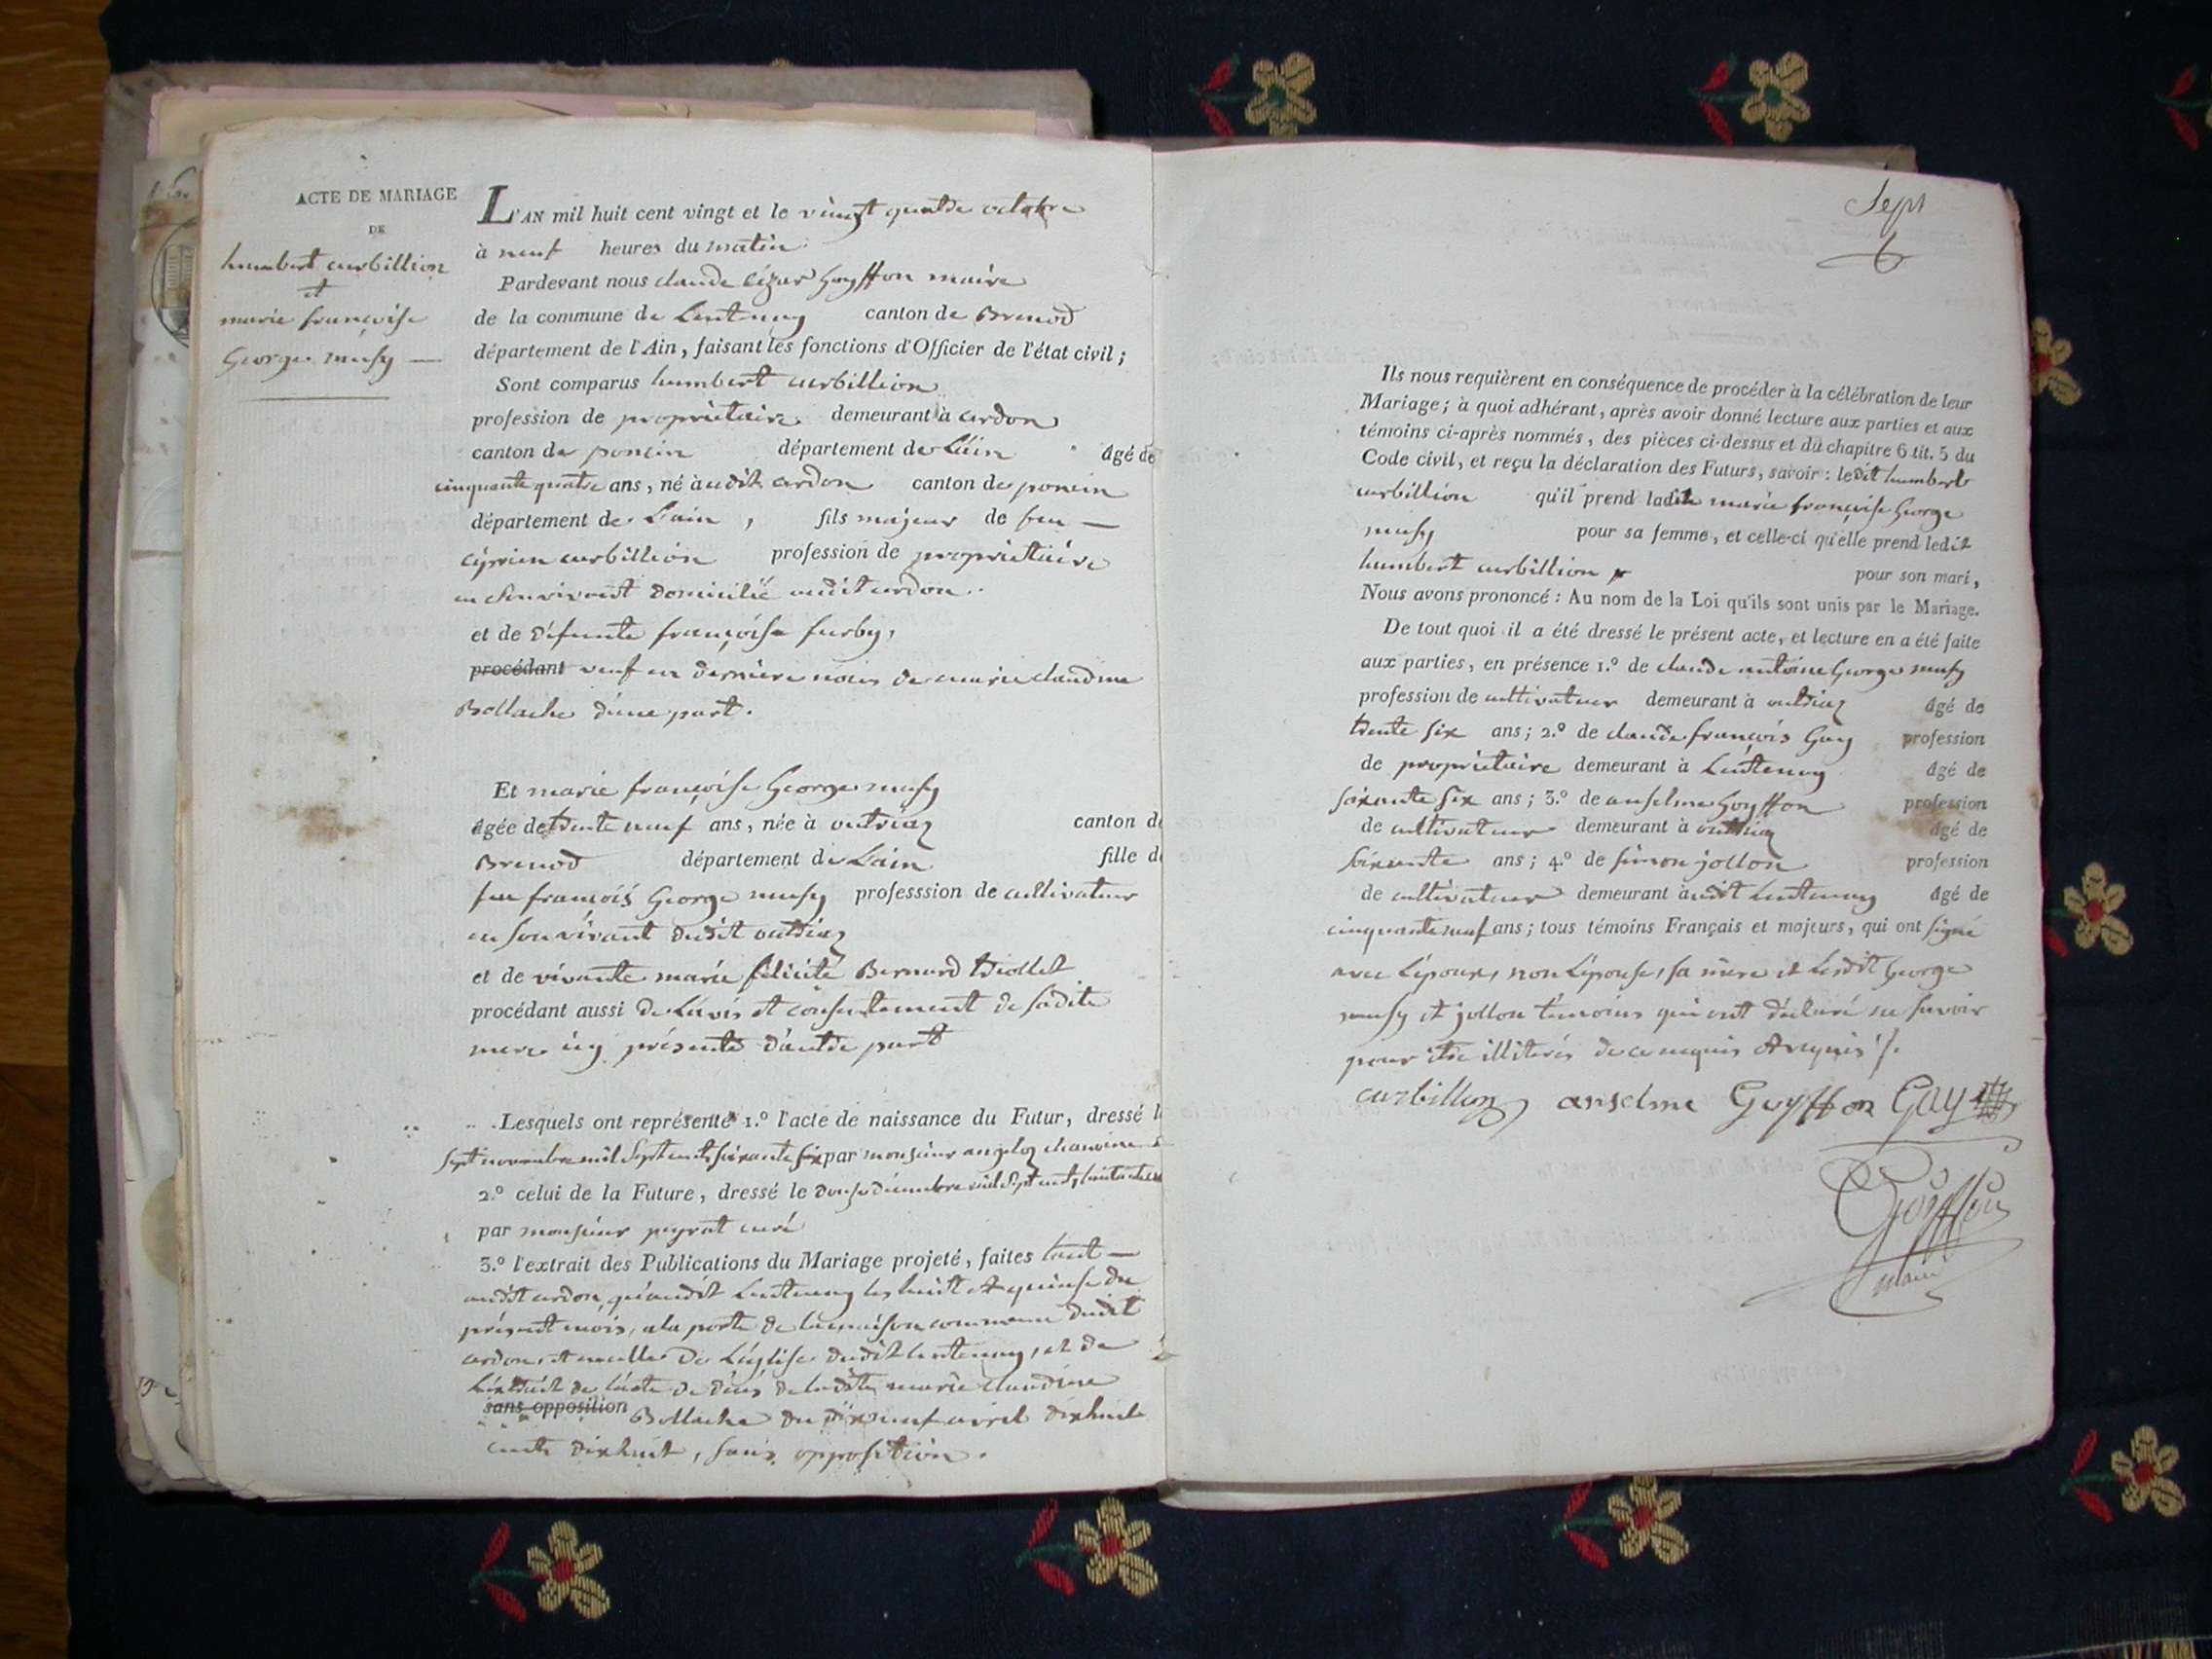 ACTE DE MARIAGE
DE
humbert curbillion
et
marie françoise
George musy
L'AN mil huit cent vingt et le vingt quatre octobre
à neuf heures du matin
Pardevant nous claude Cézar Goyffon maire
de la commune de Lentenay canton de Brenod
département de l'Ain, faisant les fonctions d'Officier de l'état civil;
Sont comparus humbert curbillion
profession de propriétaire demeurant à cerdon
canton de poncin département de L'ain âgé de
cinquante quatre ans, né àudit cerdon canton de poncin
département de L'ain, fils majeur de feu
ciprien curbillion profession de propriétaire
en son vivant domicilié audit cerdon
et de défunte françoise furby,
procédant veuf en dernière noces de marie claudine
Bollache d'une part.
Et marie françoise George musy
âgée de trente neuf ans, née à outriaz canton de
Brenod département de L'ain fille de
feu françois George musy professsion de cultivateur
en son vivant dudit outriaz
et de vivante marie félicité Bernard triollet
procédant aussi de L'avis et consentement de sadite
mere icy présente d'autre part
Lesquels ont représenté 1.º l'acte de naissance du Futur, dressé le
sept novembre mil sept cents soixante six par monsieur chanoine
2.º celui de la Future, dressé le douse décembre mil sept cents
par monsieur peyrat curé
3.º l'extrait des Publications du Mariage projeté, faites tant
audit cerdon, qu'audit Lentenay les huit et quinse du
présent mois, a la porte de la maison commune dudit
cerdon, et a celle De L'église dudit Lentenay, et de
L'extrait de l'acte de décès de ladite marie claudine
sans opposition Bollache du dixneuf avril dixhuit
cents dixhuit, sans opposition.
Sept
Ils nous requièrent en conséquence de procéder à la célébration de leur
Mariage; à quoi adhérant, après avoir donné lecture aux parties et aux
témoins ci-après nommés, des pièces ci-dessus et du chapitre 6 tit. 5 du
Code civil, et reçu la déclaration des Futurs, savoir: ledit humbert
curbillion qu'il prend ladite marie françoise George
musy pour sa femme, et celle-ci qu'elle prend ledit
humbert curbillion pour son mari,
Nous avons prononcé: Au nom de la Loi qu'ils sont unis par le Mariage.
De tout quoi il a été dressé le présent acte, et lecture en a été faite
aux parties, en présence 1.º de claude antoine George musy
profession de cultivateur demeurant à outriaz âgé de
trente six ans; 2.º de claude françois Guy profession
de propriétaire demeurant à Lentenay âgé de
soixante six ans; 3.º de anselme Goyffon profession
de cultivateur demeurant à outriaz âgé de
soixante ans; 4.º de simon jollon profession
de cultivateur demeurant àudit Lentenay âgé de
cinquante neuf ans; tous témoins Français et majeurs, qui ont signé
avec L'époux, non L'épouse, sa mère et Lesdit George
musy et jollon témoins qui ont déclaré ne savoir
pour être illiterés de ce enquis et requis ./.
curbillion anselme Goyffon Guy
Goyffon
maire